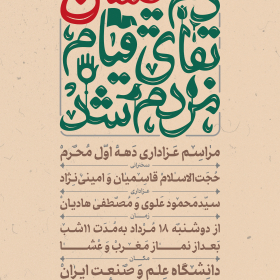 تقای قیام
مردم شد
مراسم عزاداری دههٔ اوّل مُحرّم
سخنرانی
حجت‌الاسلام قاسمیان و امینی‌نژاد
عزاداری
سیدمحمود علوی و مصطفی هادیان
زمان
از دوشنبه ۱۸ مرداد به‌مدت ۱۱ شب
بعد از نماز مغرب و عشا
مکان
دانشگاه علم و صنعت ایران